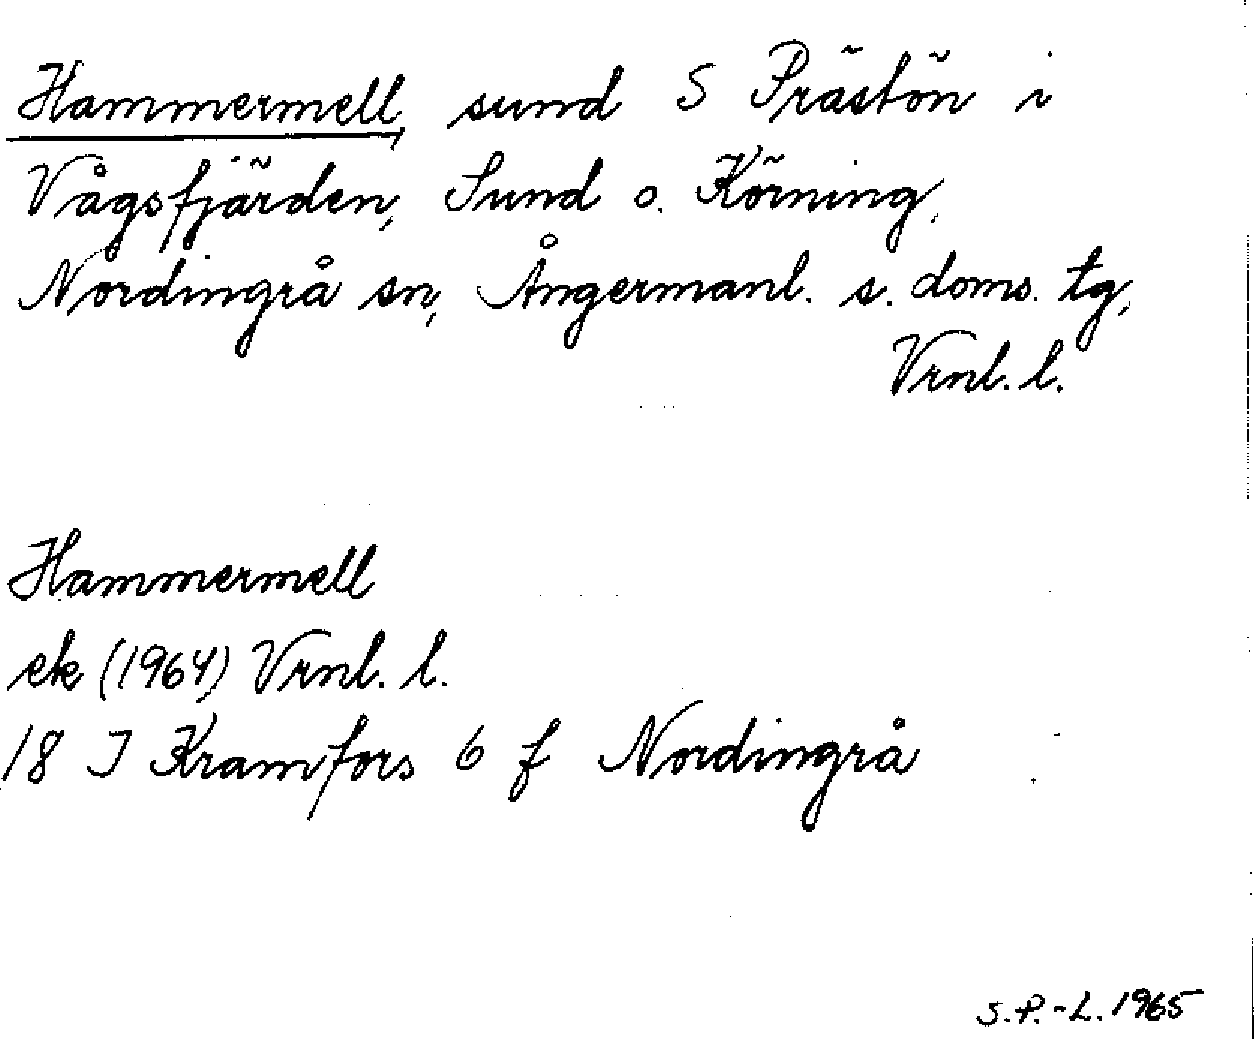 Hammermell, sund S Prästön i
Vågsfjärden, Sund o. Körning,
Nordingrå sn, Ångermanl. s. doms. tg,
Vrnl. l.
Hammermell
ek (1964) Vrnl. l.
18 J Kramfors 6 f Nordingrå
S.P.-L. 1965